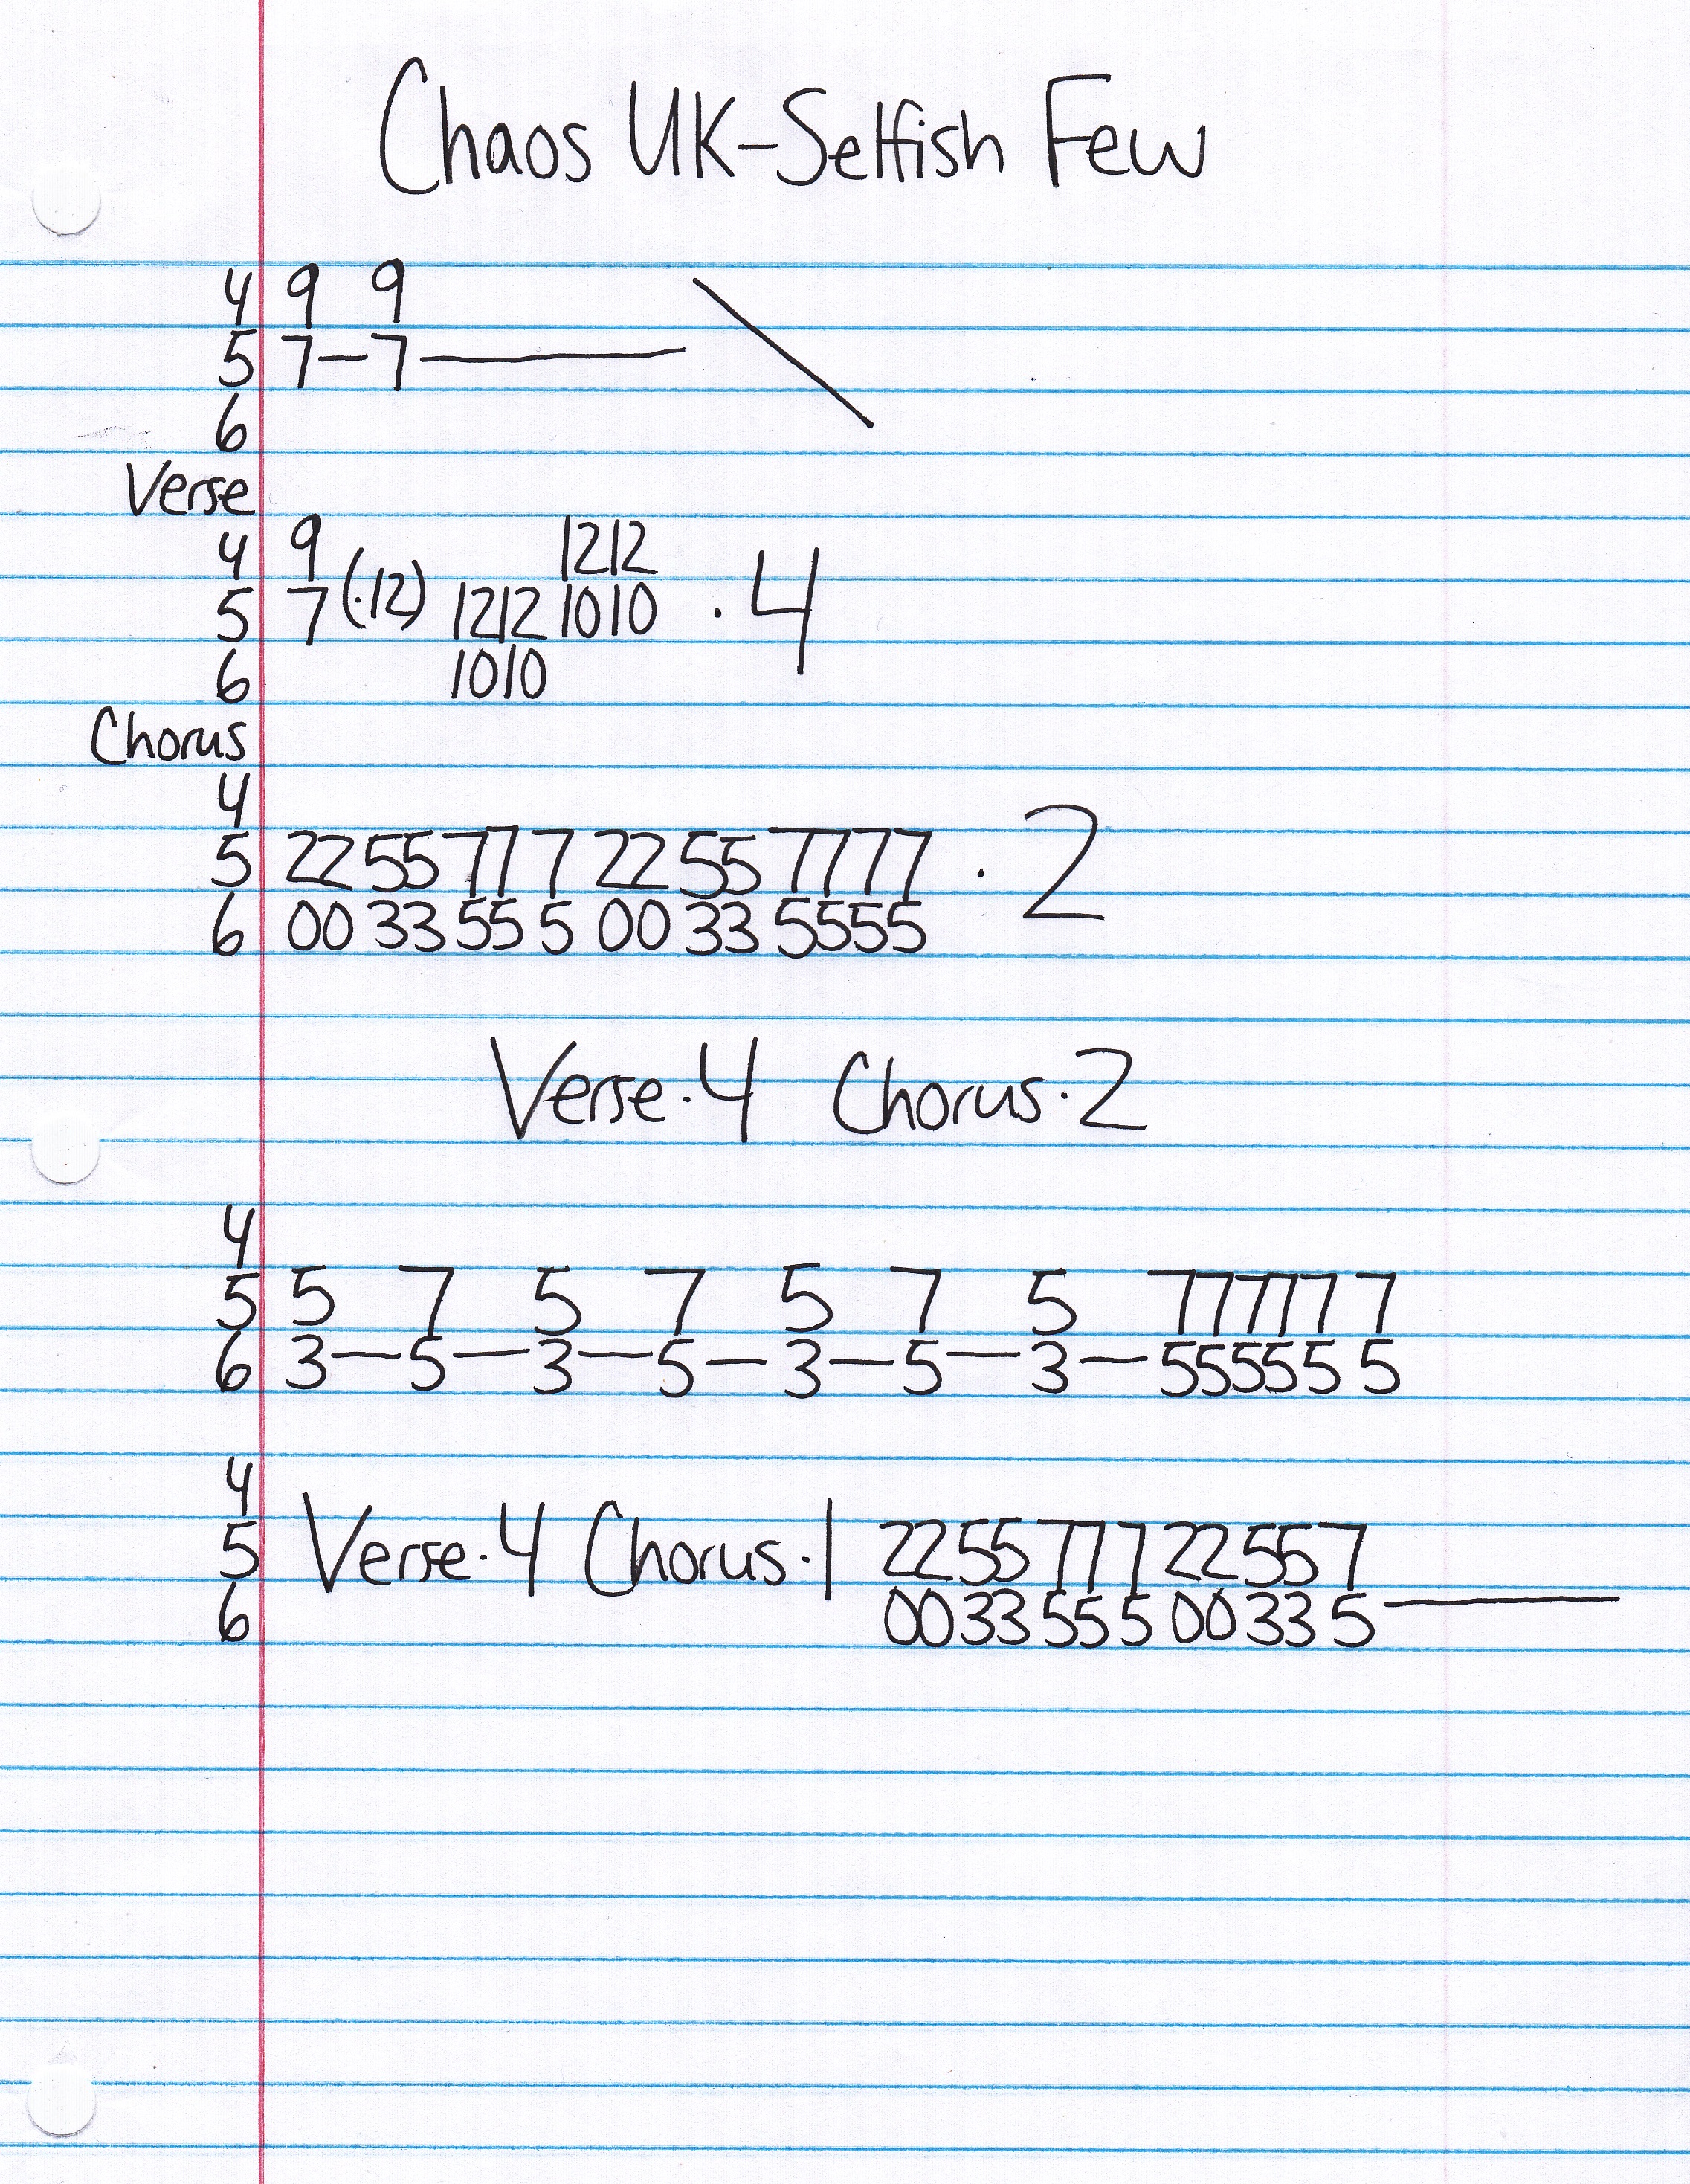 Chaos UK-Selfish Few
4 9 9
5 7—7———
6
Verse
4 9 1212
5 7 (·12) 1212 1010 · 4
6 1010
Chorus
4
5 22 55 77 7 22 55 7777 · 2
6 00 33 55 5 00 33 5555
Verse·4 Chorus·2
4
5 5 7 5 7 5 7 5 77777 7
6 3—5—3—5—3—5—3—55555 5
4
5 Verse·4 Chorus·1 2255 777 22557
6 0033 555 0033 5———